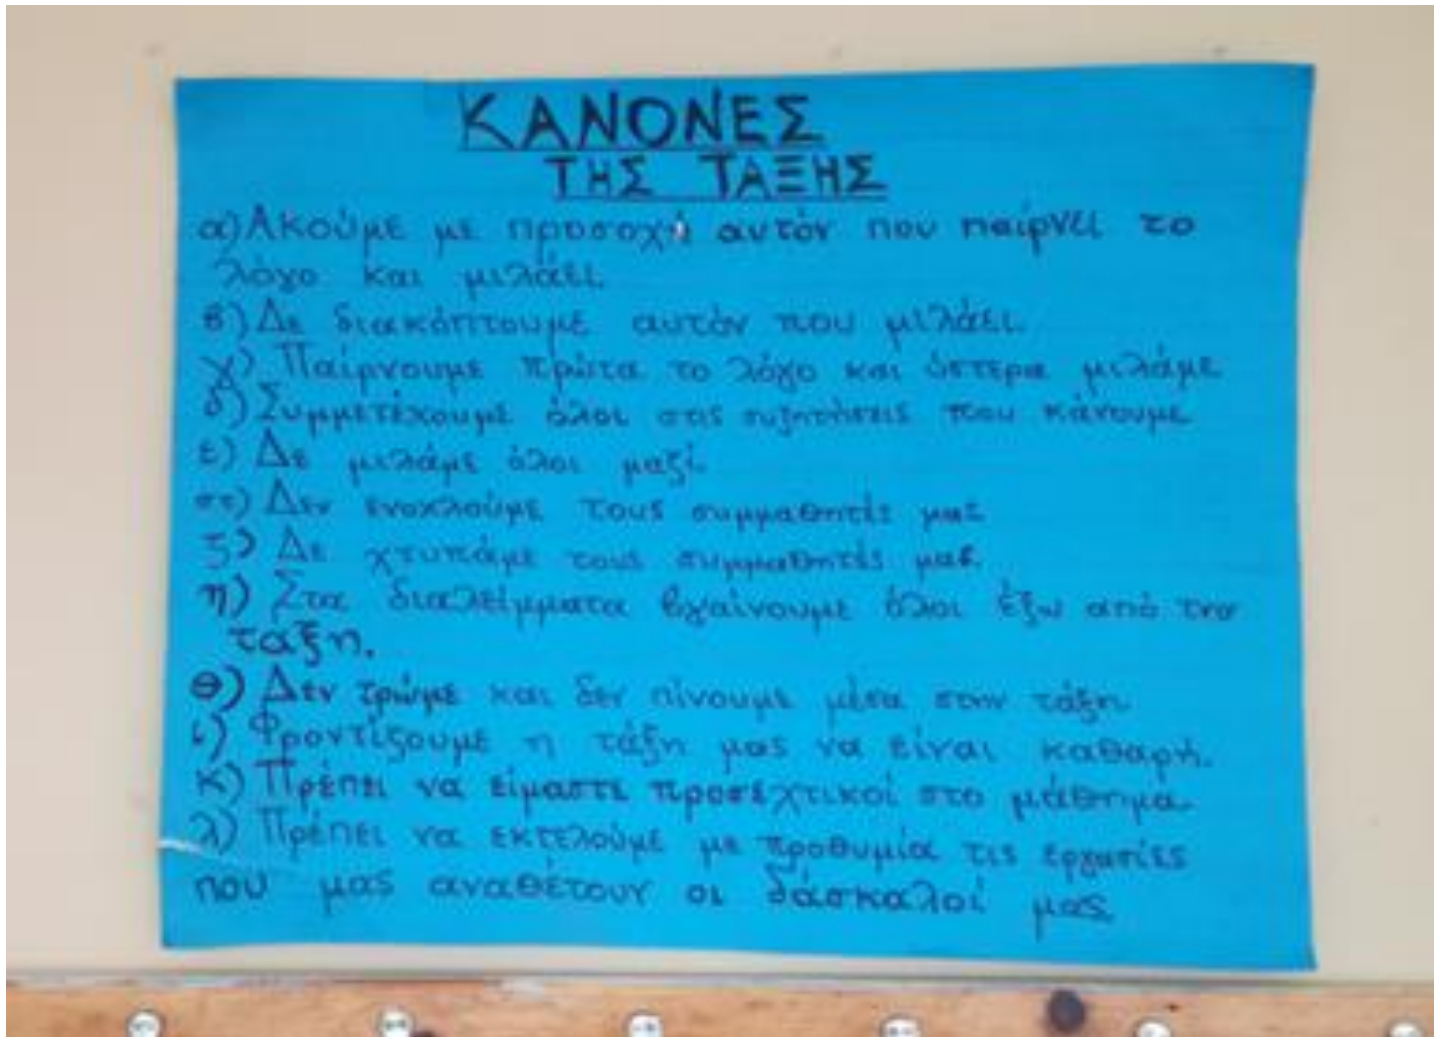 ΚΑΝΟΝΕΣ
ΤΗΣ ΤΑΞΗΣ
α) Ακούμε με προσοχή αυτόν που παίρνει το
λόγο και μιλάει.
β) Δε διακόπτουμε αυτόν που μιλάει.
γ) Παίρνουμε πρώτα το λόγο και ύστερα μιλάμε
δ) Συμμετέχουμε όλοι στις συζητήσεις που κάνουμε
ε) Δε μιλάμε όλοι μαζί.
στ) Δεν ενοχλούμε τους συμμαθητές μας
ζ) Δε χτυπάμε τους συμμαθητές μας.
η) Στα διαλείμματα βγαίνουμε όλοι έξω από την
τάξη.
θ) Δεν τρώμε και δεν πίνουμε μέσα στην τάξη
ι) Φροντίζουμε η τάξη μας να είναι καθαρή.
κ) Πρέπει να είμαστε προσεχτικοί στο μάθημα.
λ) Πρέπει να εκτελούμε με προθυμία τις εργασίες
που μας αναθέτουν οι δάσκαλοί μας